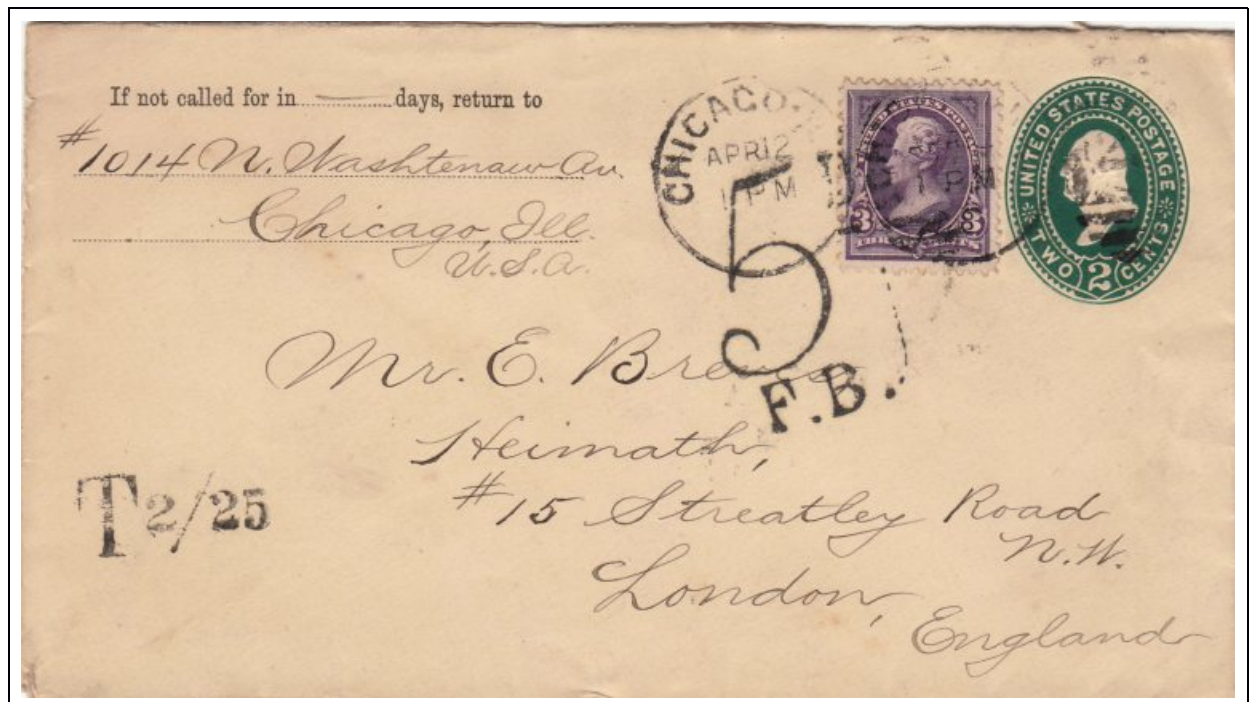 If not called for in ........ days, return to
#1014 N. Washtenaw Av.
Chicago, Ill.
U.S.A.
CHICAGO.
APR 12
1 PM
3 3
UNITED STATES POSTAGE
TWO 2 CENTS
5
F.B.
Mr. E.
Heimath,
#15 Streatley Road
N.W.
London,
England
T 2/25